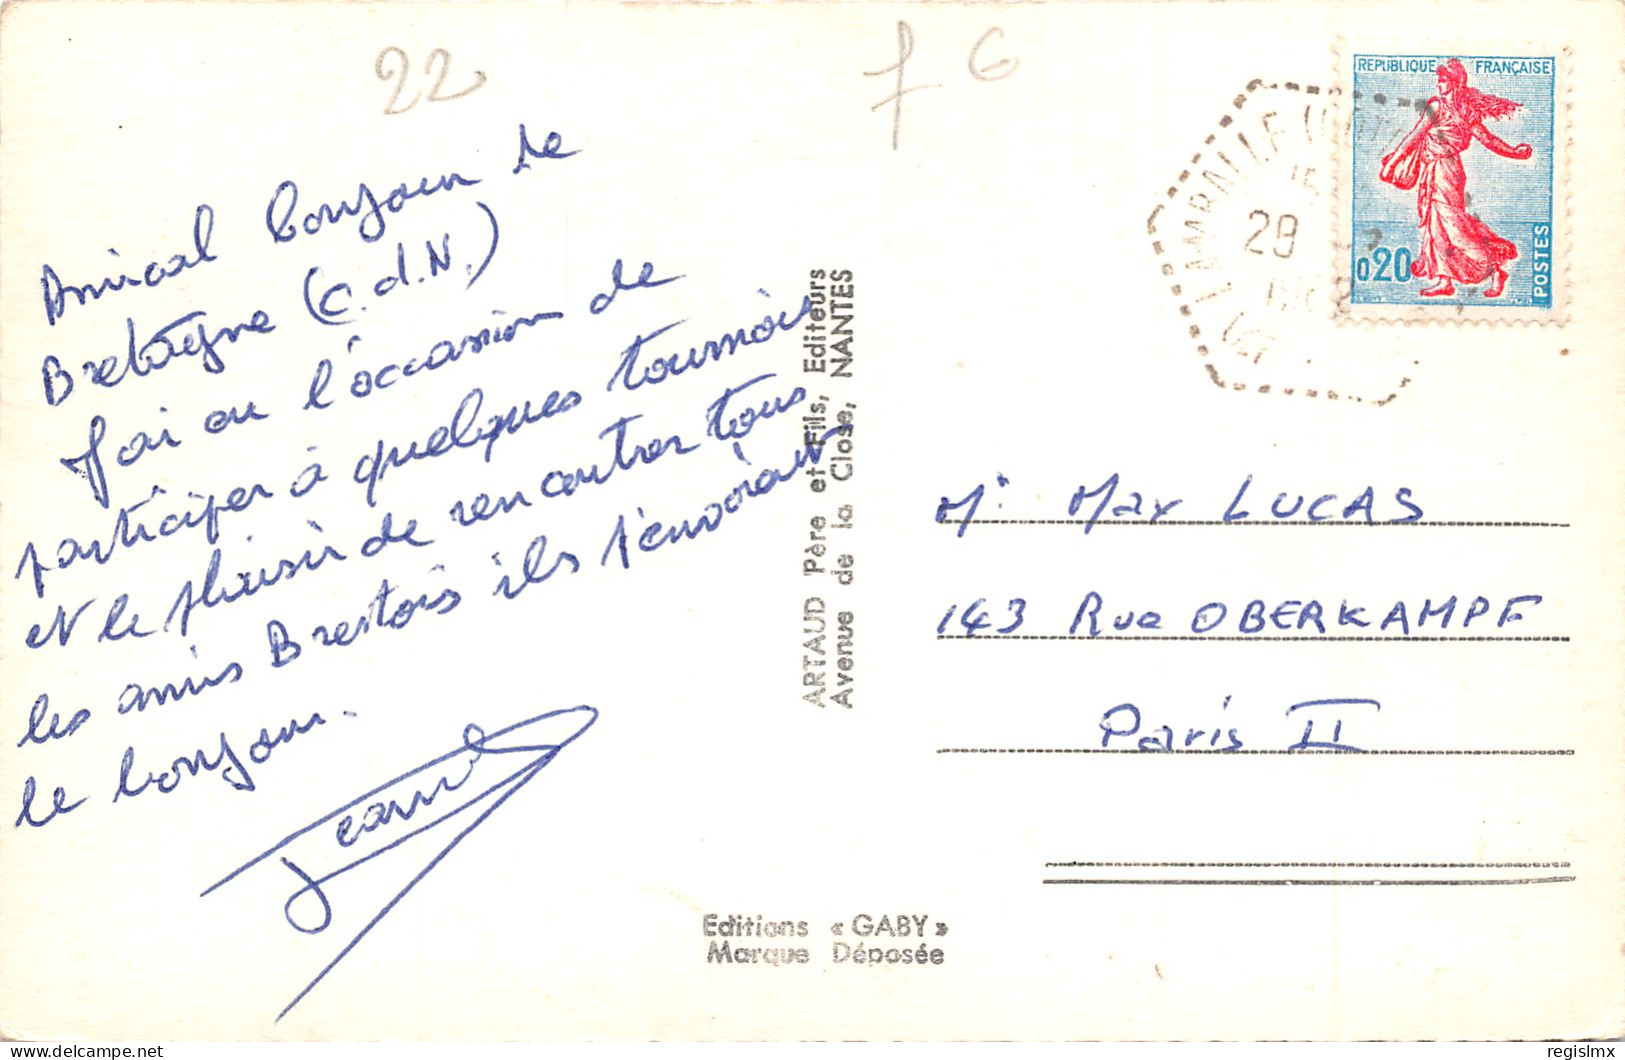 22
f 6
Amical bonjour de
Bretagne (C.d.N.)
J'ai eu l'occasion de
participer à quelques tournois
et le plaisir de rencontrer tous
les amis Brestois ils t'envoient
le bonjour.
ARTAUD Père et Fils, Editeurs
Avenue de la Close, NANTES
Editions « GABY »
Marque Déposée
REPUBLIQUE FRANÇAISE
0,20
POSTES
LAMBALLE
29
Mr Max LUCAS
143 Rue OBERKAMPF
Paris II
delcampe.net
regislmx